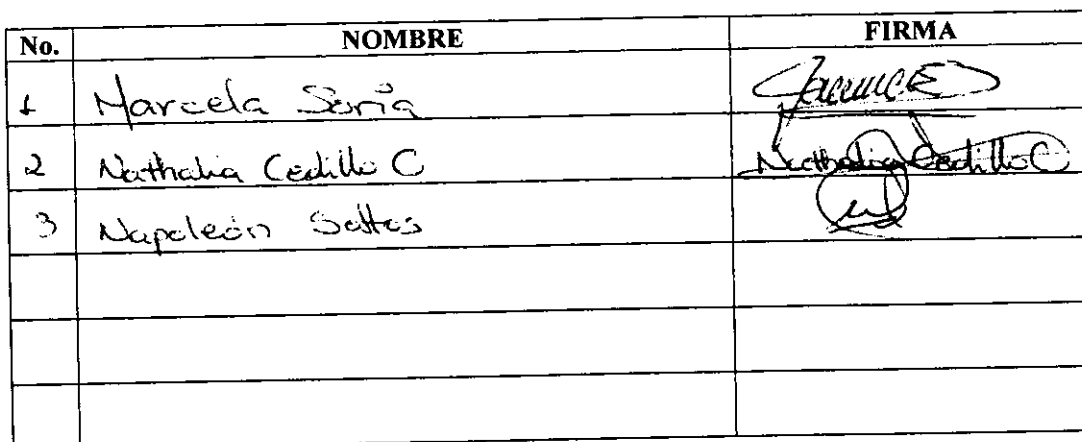 No. NOMBRE FIRMA
1 Marcela Soria
2 Nathalia Cedillo C Nathalia Cedillo C
3 Napoleón Saltos